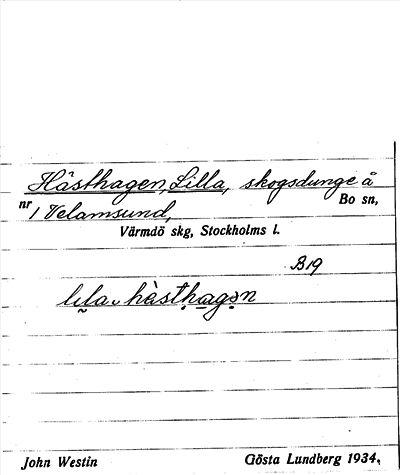 Hästhagen, Lilla, skogsdunge å
nr 1 Velamsund, Bo sn,
Värmdö skg, Stockholms l.
B19
lı̣la hàstḥagən
John Westin Gösta Lundberg 1934.